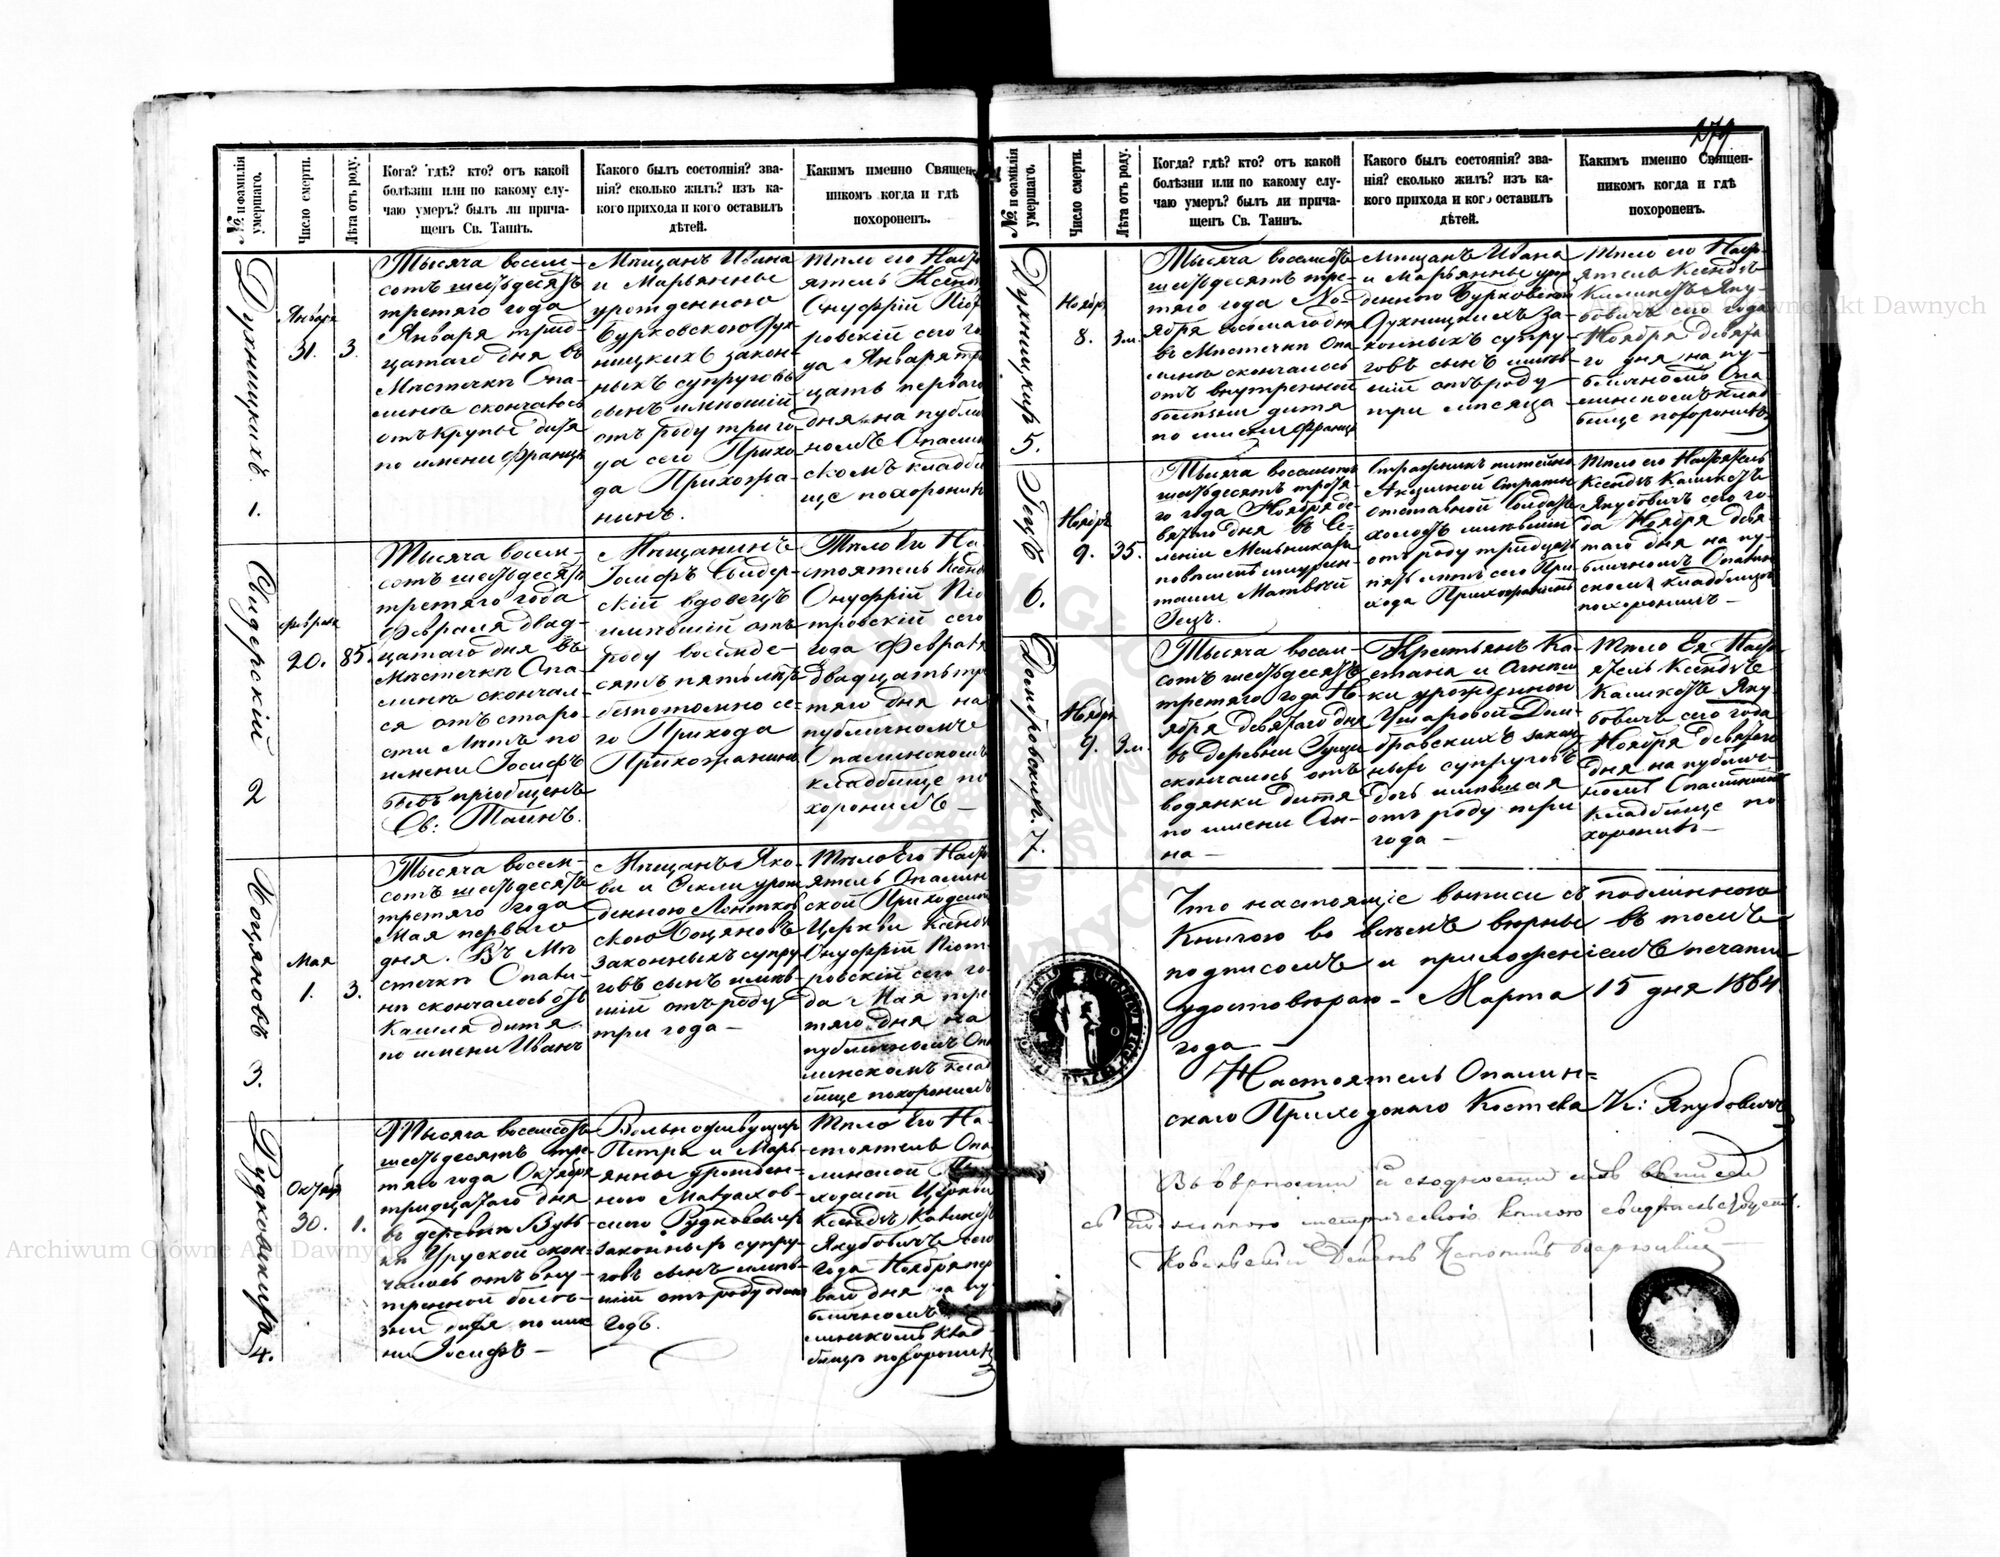 279
№ и фамилія умершаго.
Число смерти.
Лѣта отъ роду.
Кога? гдѣ? кто? отъ какой
болѣзни или по какому слу-
чаю умеръ? былъ ли прича-
щенъ Св. Таинъ.
Какого былъ состоянія? зва-
нія? сколько жилъ? изъ ка-
кого прихода и кого оставилъ
дѣтей.
Какимъ именно Священ-
никомъ когда и гдѣ
похороненъ.
Духницкихъ. 1
Января
31.
3.
Тысяча восем-
сотъ шестьдесятъ
третяго года
Января трид-
цатаго дня въ
Мѣстечкѣ Опа-
линѣ скончалось
отъ крупы дитя
по имени Францъ
Мѣщанъ Ивана
и Марьянны
урожденною
Бурковскою Дух-
ницкихъ закон-
ныхъ супруговъ
сынъ имѣвшій
отъ роду три го-
да сего Прихо-
да Прихожа-
нинъ.
Тѣло его Насто
ятель Ксендзъ
Онуфрій Піот
ровскій сего го-
да Января три
цать перваго
дня на публи
номъ Опалин
скомъ кладби
ще похоронилъ
Свидерскій 2
Февраля
20.
85.
Тысяча восем-
сотъ шестьдесятъ
третяго года
Февраля двад-
цатаго дня въ
Мѣстечкѣ Опа-
линѣ скончал-
ся отъ старо-
сти лѣтъ по
имени Іосифъ
бывъ пріобщенъ
Св: Таинъ.
Мѣщанинъ
Іосифъ Свидер-
скій вдовецъ
имѣвшій отъ
роду восемьде-
сятъ пять лѣтъ
безпотомно се-
го Прихода
Прихожанинъ
Тѣло Его На-
стоятель Ксенд
Онуфрій Піо
тровскій сего
года Февраля
двадцать тре
тяго дня на
публичномъ
Опалинскомъ
кладбище по
хоронилъ —
Коцяновъ 3
Мая
1.
3.
Тысяча восем-
сотъ шестьдесятъ
третяго года
Мая перваго
дня. Въ Мѣ
стечкѣ Опали-
нѣ скончалось отъ
Кашля дитя
по имени Иванъ
Мѣщанъ Яко-
ва и Феклы урож
денною
скою Коцяновъ
законныхъ супру
говъ сынъ имѣв-
шій отъ роду
три года —
Тѣло Его Насто
ятель Опалин
ской Приходской
Церкви Ксендзъ
Онуфрій Піот-
ровскій сего го-
да Мая тре
тяго дня на
публичномъ Опа
линскомъ клад
бище похоронилъ
Рудковскихъ 4.
Октябр
30.
1.
Тысяча восемсотъ
шестьдесятъ тре-
тяго года Октября
тридцатаго дня
въ деревнѣ
Рруской скон-
чалось отъ вну-
тренной болѣ-
зни дитя по име
ни Іосифъ —
Вольноживущихъ
Петра и Марь-
янны урожден-
ною
Рудковскихъ
законныхъ супру-
говъ сынъ имѣв-
шій отъ роду одинъ
годъ.
Тѣло Его На-
стоятель Опа-
линской При
ходской Церкви
Ксендзъ Каликстъ
Якубовичъ сего
года Ноября пер
ваго дня на пу
бличномъ
линскомъ клад-
бищѣ похоронилъ
№ и фамилія умершаго.
Число смерти.
Лѣта отъ роду.
Когда? гдѣ? кто? отъ какой
болѣзни или по какому слу-
чаю умеръ? былъ ли прича-
щенъ Св. Таинъ.
Какого былъ состоянія? зва-
нія? сколько жилъ? изъ ка-
кого прихода и кого оставилъ
дѣтей.
Какимъ именно Священ-
никомъ когда и гдѣ
похороненъ.
Духницкихъ 5.
Ноябр
8.
3 м.
Тысяча восемсотъ
шестьдесятъ тре-
тяго года Но-
ября восьмаго дня
въ Мѣстечкѣ Опа
линѣ скончалось
отъ внутренной
болѣзни дитя
по имени Францъ
Мѣщанъ Ивана
и Марьянны уро
денною Бурковской
Духницкихъ за-
конныхъ супру-
говъ сынъ имѣв-
шій отъ роду
три мѣсяца
Тѣло его Насто-
ятель Ксендзъ
Каликстъ Яку-
бовичъ сего года
Ноября девята-
го дня на пу-
бличномъ Опа-
линскомъ клад
бище похоронилъ
Гецъ 6.
Ноябр
9.
35.
Тысяча восемсотъ
шестьдесятъ третя-
го года Ноября де-
вятого дня въ Се-
леніи
Матвѣй
Гецъ.
Стражникъ питейно
Акцизной Стражи
отставной Солдатъ
холостъ имѣвшій
отъ роду тридцать
пять лѣтъ сего При-
хода Прихожанинъ
Тѣло его Настоятель
Ксендзъ Каликстъ
Якубовичъ сего го-
да Ноября девя-
таго дня на пу-
бличномъ Опалин
скомъ кладбище
похоронилъ —
Домбровских. 7.
Ноябр
9.
3 м.
Тысяча восем-
сотъ шестьдесятъ
третяго года Но-
ября девятаго дня
въ деревни Гущи
скончалось отъ
водянки дитя
по имени Ан-
на —
Крестьянъ Ка-
етана и Агнеш
ки урожденной
Дом-
бровскихъ закон
ныхъ супруговъ
дочь имѣвшая
отъ роду три
года —
Тѣло Ея Насто
ятель Ксендзъ
Каликстъ Яку
бовичъ сего года
Ноября девятаго
дня на публич-
номъ Опалинскомъ
кладбище по-
хоронилъ —
Что настоящіе выписи съ подлинною
Книгою во всемъ вѣрны въ томъ
подписомъ и приложеніемъ печати
удостовѣраю — Марта 15 дня 1864
года —
Настоятель Опалин=
скаго Приходскаго Костела К: Якубовичъ